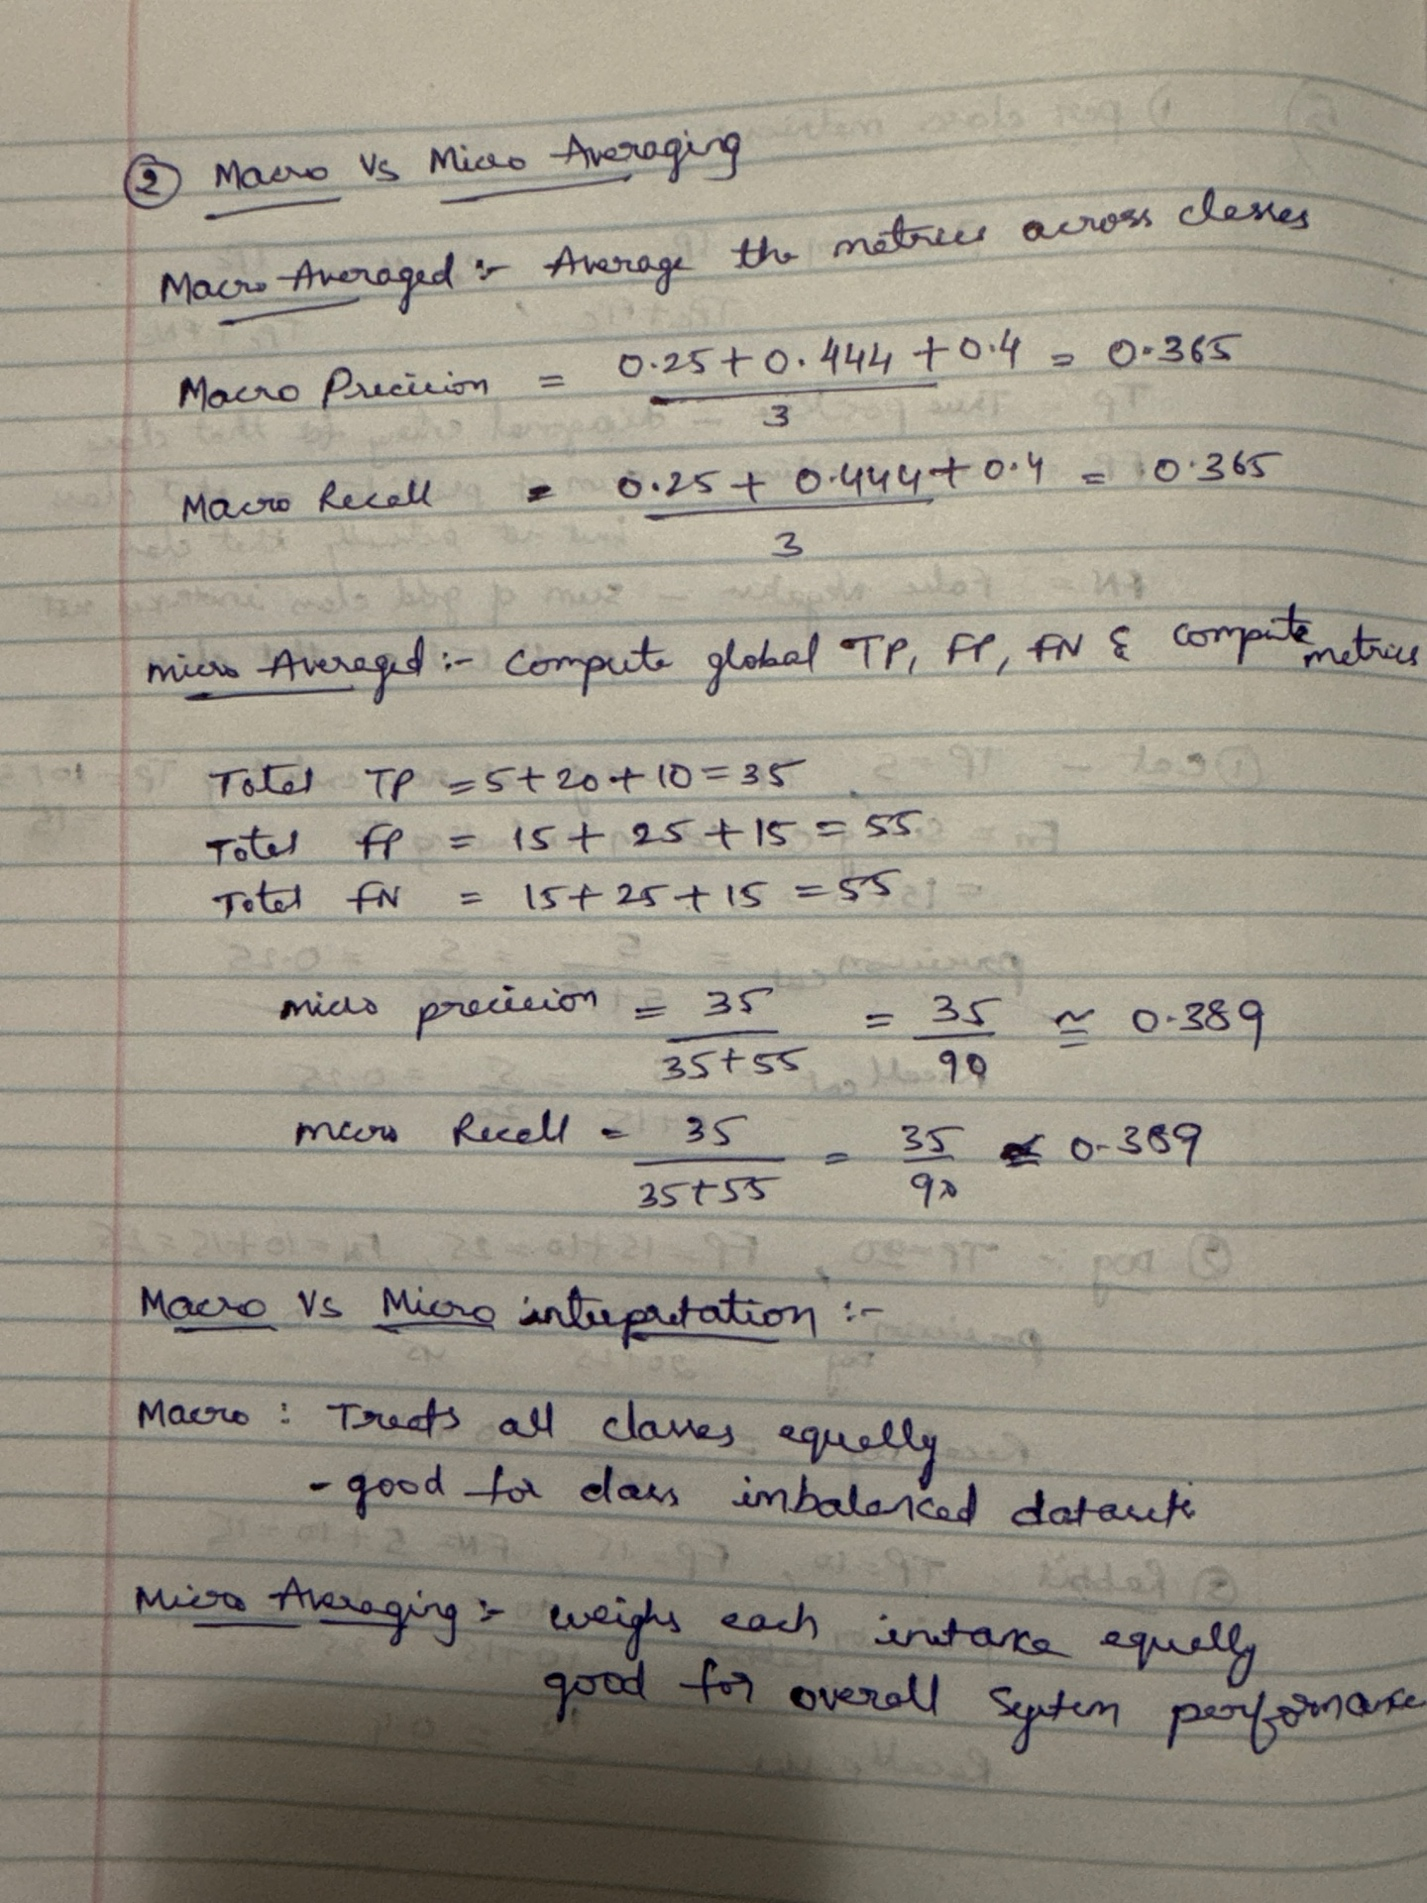 ② Macro Vs Micro Averaging
Macro Averaged :- Average the metrics across classes
Macro Precision = 0.25 + 0.444 + 0.4 / 3 = 0.365
Macro Recall = 0.25 + 0.444 + 0.4 / 3 = 0.365
micro Averaged :- Compute global TP, FP, FN & compute metrics
Total TP = 5+20+10 = 35
Total FP = 15 + 25 + 15 = 55
Total FN = 15 + 25 + 15 = 55
micro precision = 35 / 35+55 = 35 / 90 ≅ 0.389
micro Recall = 35 / 35+55 = 35 / 90 ≅ 0.389
Macro Vs Micro interpretation :-
Macro : Treats all classes equally
- good for class imbalanced datasets
Micro Averaging :- weighs each instance equally
good for overall System performance